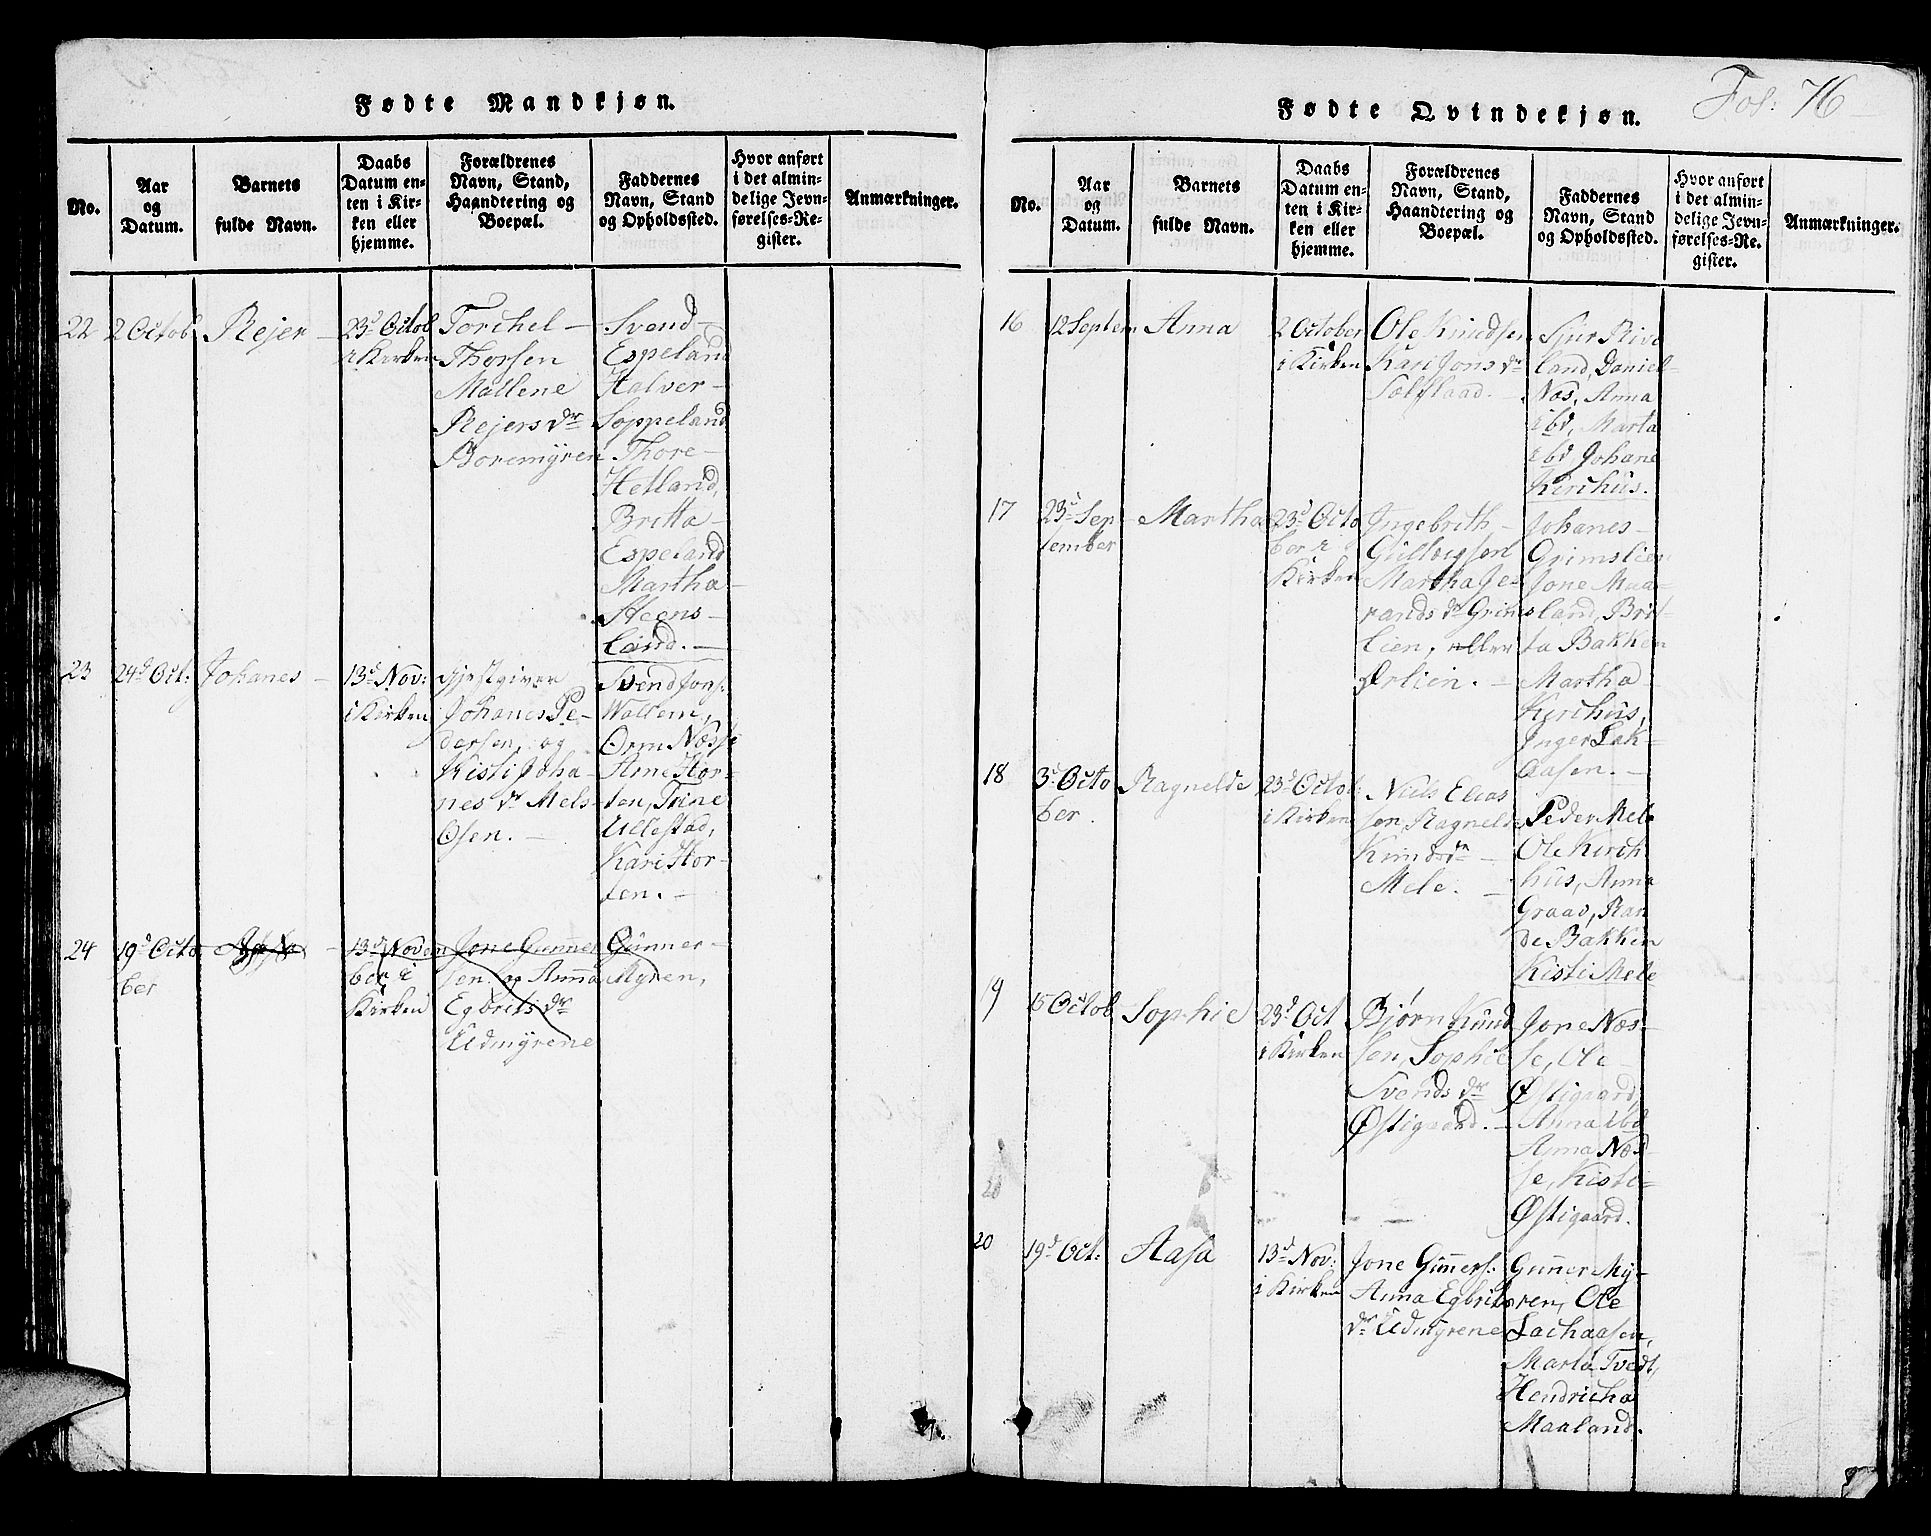 Fødte Mandkjøn.
No.
Aar
og
Datum.
Barnets
fulde Navn.
Daabs
Datum en-
ten i Kir-
ken eller
hjemme.
Forældrenes
Navn, Stand,
Haandtering og
Boepæl.
Faddernes
Navn, Stand
og Opholdssted.
Hvor anført
i det almin-
delige Jevn-
førelses-Re-
gister.
Anmærkninger.
22
2 Octob
Rejer
23d Octob
i Kirken
Torchel
Thorsen
Mallene
Rejers dr
Boremyren
Svend
Espeland
Halver
Soppeland
Thore
Hetland,
Britta
Espeland
Martha
Steens-
land.
23
24d Oct:
Johanes
13d Nov:
i Kirken
Gjestgiver
Johanes Pe-
dersen, og
Kisti Joha-
nes dr Mels-
Osen.
Svend Jons:
Wallem,
Orm Næsse
Arne Hor-
ten, Trine
Ullestad,
Kari Hor-
ten.
24
19d Octo
ber
13d Novem
ber i
Kirken
Jone Gunner
sen og Anna
Egbrits dr
Udmyrene
Gunner
Myren,
Fødte Qvindekjøn.
Fol: 76
No.
Aar
og
Datum.
Barnets
fulde Navn.
Daabs
Datum en-
ten i Kir-
ken eller
hjemme.
Forældrenes
Navn, Stand,
Haandtering og
Boepæl.
Faddernes
Navn, Stand
og Opholdssted.
Hvor anført
i det almin-
delige Jevn-
førelses-Re-
gister.
Anmærkninger.
16
12 Septem
Anna
2 October
i Kirken
Ole Knudsen
Kari Jons dr
Sjur Rive
land, Daniel
Næs, Anna
ibd, Marta
ibd Johane
Kirchus.
17
23d Sep
tember
Martha
23d Octo
ber i
Kirken
Ingebrith
Martha Je-
rands dr Grims
lien, eller
Ørlien.
Johanes
Grimslien
Jone Maa-
land, Brit-
ta Bakken
Martha
Kirchus,
Inger Lak-
aasen.
18
3d Octo
ber.
Ragnelde
23d Octob:
i Kirken
Niels Elias
sen, Ragnelde
Knuds dr
Mele.
Peder Mele
Ole Kirch
hus, Anna
Graad, Ran
de Bakken
Kisti Mele
19
15 Octob
Sophie
23d Oct
i Kirken
Bjørn Knud
sen, Sophie
Svends dr
Østigaard.
Jone Næs-
se, Ole
Østigaard,
Anna ibd
Anna Næs
se, Kisti
Østigaard.
20
20
19d Oct:
Aasa
13d Nov:
i Kirken
Jone Gunners:
Anna Egbrits
dr Udmyrene
Gunner My-
ren, Ole
Lachaasen,
Marta Tvedt,
Hendricha
Maaland.